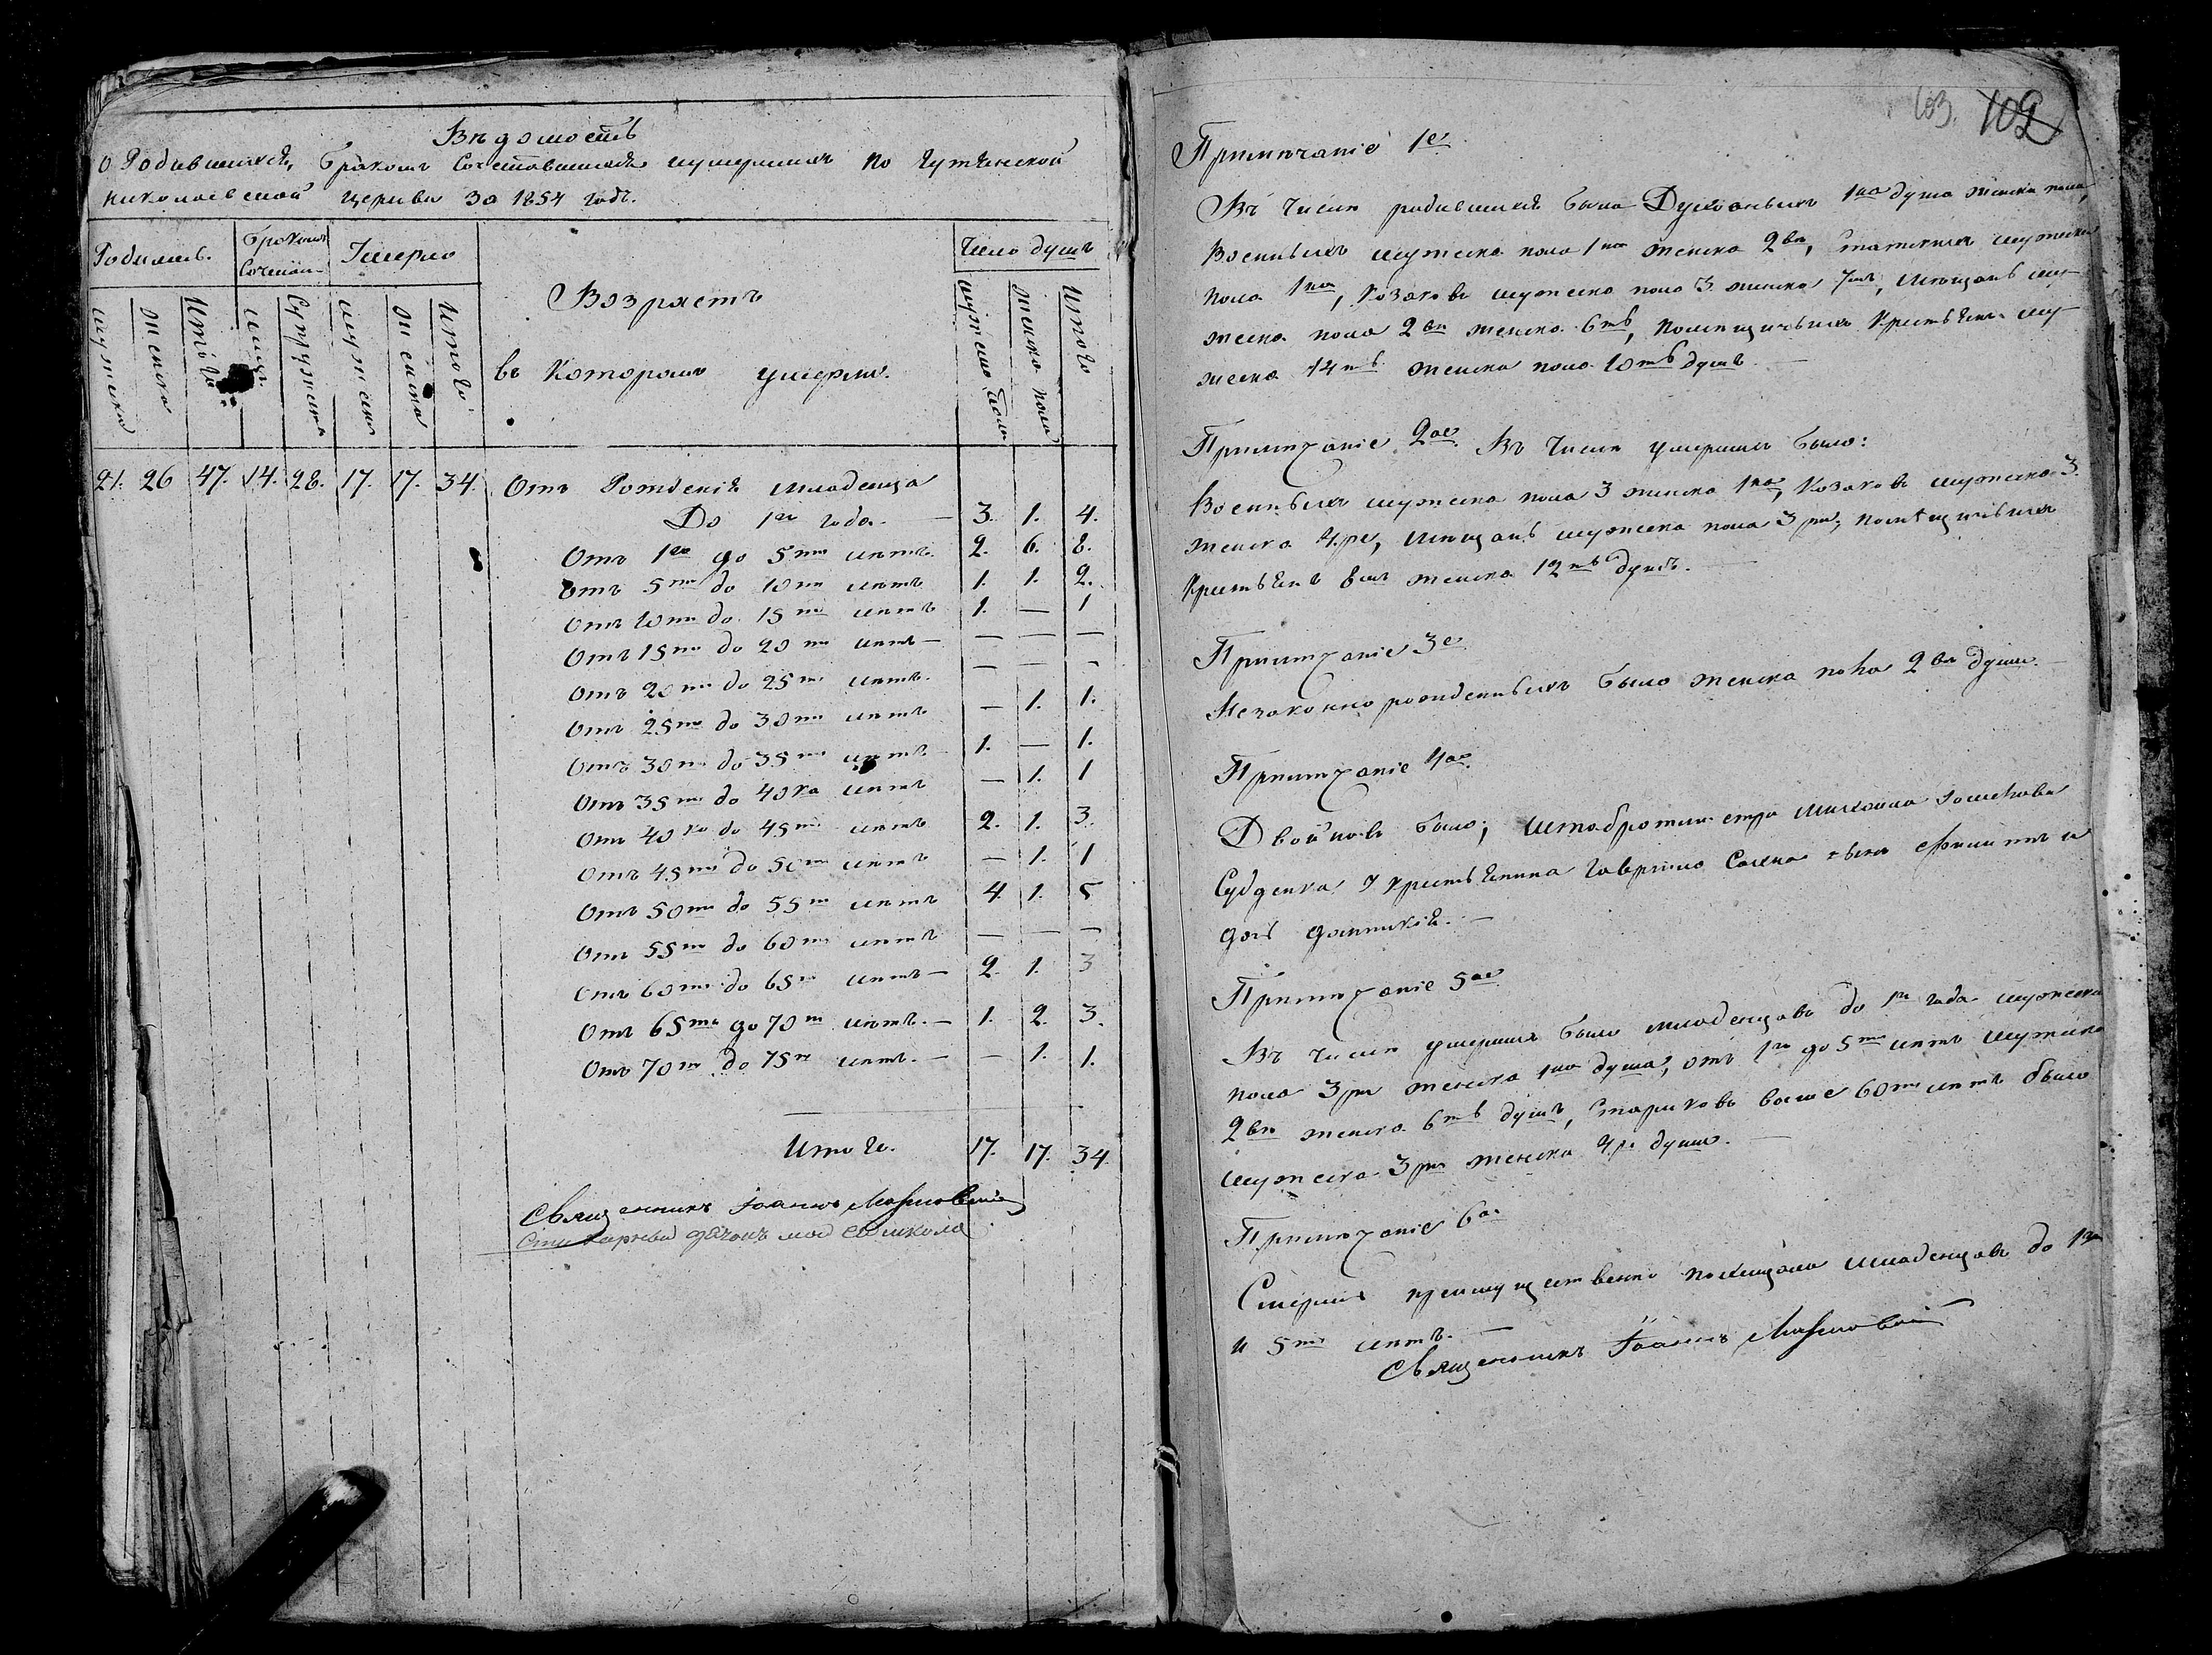 Вѣдомость
о Родившихся, бракомъ Сочетавшихся и умершихъ по
Николаевской Церкви За 1854 годъ.
Родилось. Бракомъ Сочетан. Умерло
Возрастъ
въ Которомъ умерли.
Число душъ
мужска женска Итого лицъ. Супружествъ мужска женска Итого
мужска пола женска пола Итого
21. 26 47. 14. 28. 17. 17. 34. Отъ Рожденія младенца
До 1го года. — 3. 1. 4.
Отъ 1го до 5ти лѣтъ. 2. 6. 8.
Отъ 5ти до 10ти лѣтъ 1. 1. 2.
Отъ 10ти до 15ти лѣтъ 1. — 1
Отъ 15ти до 20ти лѣтъ — — — —
Отъ 20ти до 25ти лѣтъ. — — —
Отъ 25ти до 30ти лѣтъ — 1. 1.
Отъ 30ти до 35ти лѣтъ 1. — 1.
Отъ 35ти до 40ка лѣтъ — 1. 1
Отъ 40ка до 45ти лѣтъ 2. 1. 3.
Отъ 45ти до 50ти лѣтъ — 1. 1
Отъ 50ти до 55ти лѣтъ 4. 1. 5
Отъ 55ти до 60ти лѣтъ — — —
Отъ 60ти до 65ти лѣтъ — 2. 1. 3
Отъ 65ти до 70ти лѣтъ. — 1. 2. 3.
Отъ 70ти до 75ти лѣтъ. — — 1. 1.
Итого. 17. 17. 34.
Священникъ Іоаннъ
103. 102
Примѣчаніе 1е
Въ Числѣ родившихся было Духовныхъ 1на душа женска пола,
Военныхъ мужеска пола 1на женска 2вѣ, Статскихъ мужеска
пола 1на, Козаковъ мужеска пола 3 женска 7мь, Мещанъ му-
жеска пола 2вѣ женска 6ть, помѣщичьихъ Крестьянъ му-
жеска 14ть женска пола 10ть душъ. —
Примѣчаніе 2ое. Въ Числѣ умершихъ было:
Военныхъ мужеска пола 3 женска 1на, Козаковъ мужеска 3.
женска 4ре, мещанъ мужеска пола 3ри, помѣщичьихъ
Крестьянъ 8мь женска 12ть душъ. —
Примѣчаніе 3е
Незаконно рожденныхъ было женска пола 2вѣ души. —
Примѣчаніе 4ое
Двойновъ было; Штабротмистра Михаила
Крестьянина Гавріила сынъ и
дочь —
Примѣчаніе 5ое
Въ Числѣ умершихъ было младенцовъ до 1го года мужеска
пола 3ри женска 1на душа, отъ 1го до 5ти лѣтъ мужеска
2вѣ женска 6ть душъ, Стариковъ выше 60ти лѣтъ было
мужеска 3ри женска 4ре души. —
Примѣчаніе 6ое
Смерть преимущественно похищала младенцовъ до 1го
и 5ти лѣтъ. —
Священникъ Іоаннъ